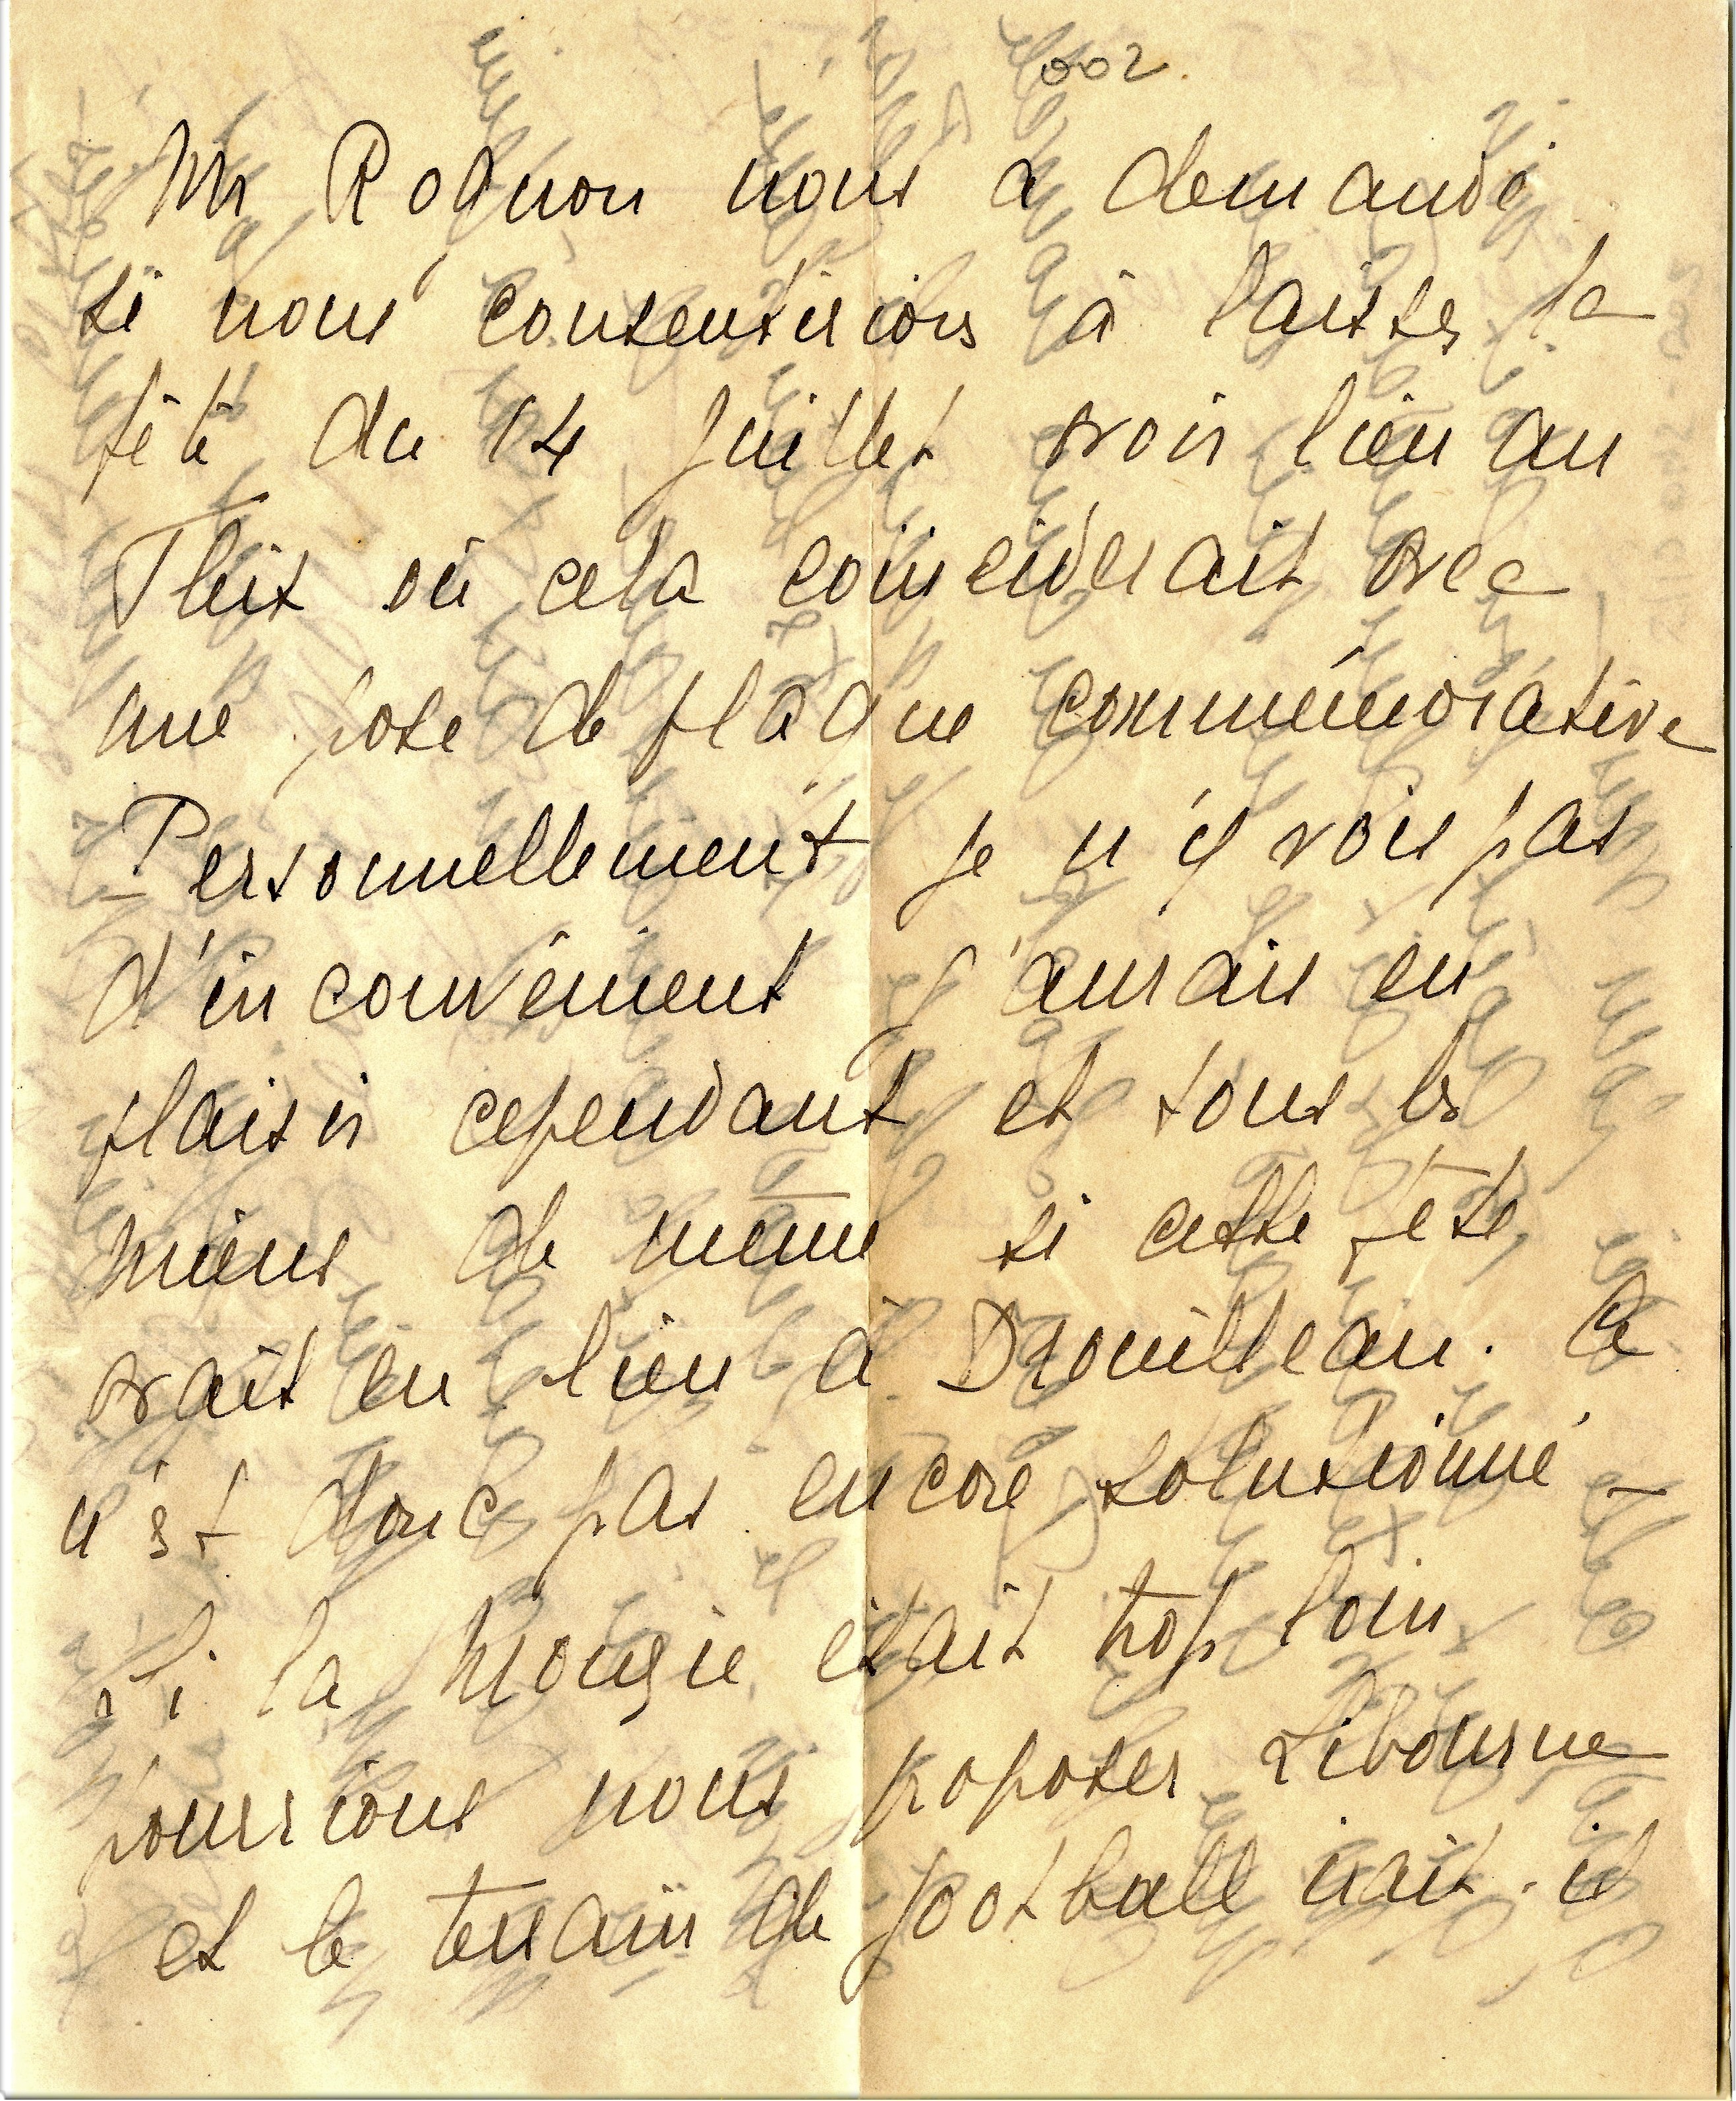 002.
Mr Roquon nous a demandé
si nous consentirions à laisser la
fête du 14 Juillet avoir lieu au
où cela coïnciderait avec
une pose de plaque commémorative
Personnellement je n'y vois pas
d'inconvénient j'aurais eu
plaisir cependant et tous les
miens de même si cette fête
avait eu lieu à Drouilleau. Ce
n'est donc pas encore solutionné -
Si la Mongie était trop loin
pourrions nous proposer Libourne
et le terrain de football irait-il